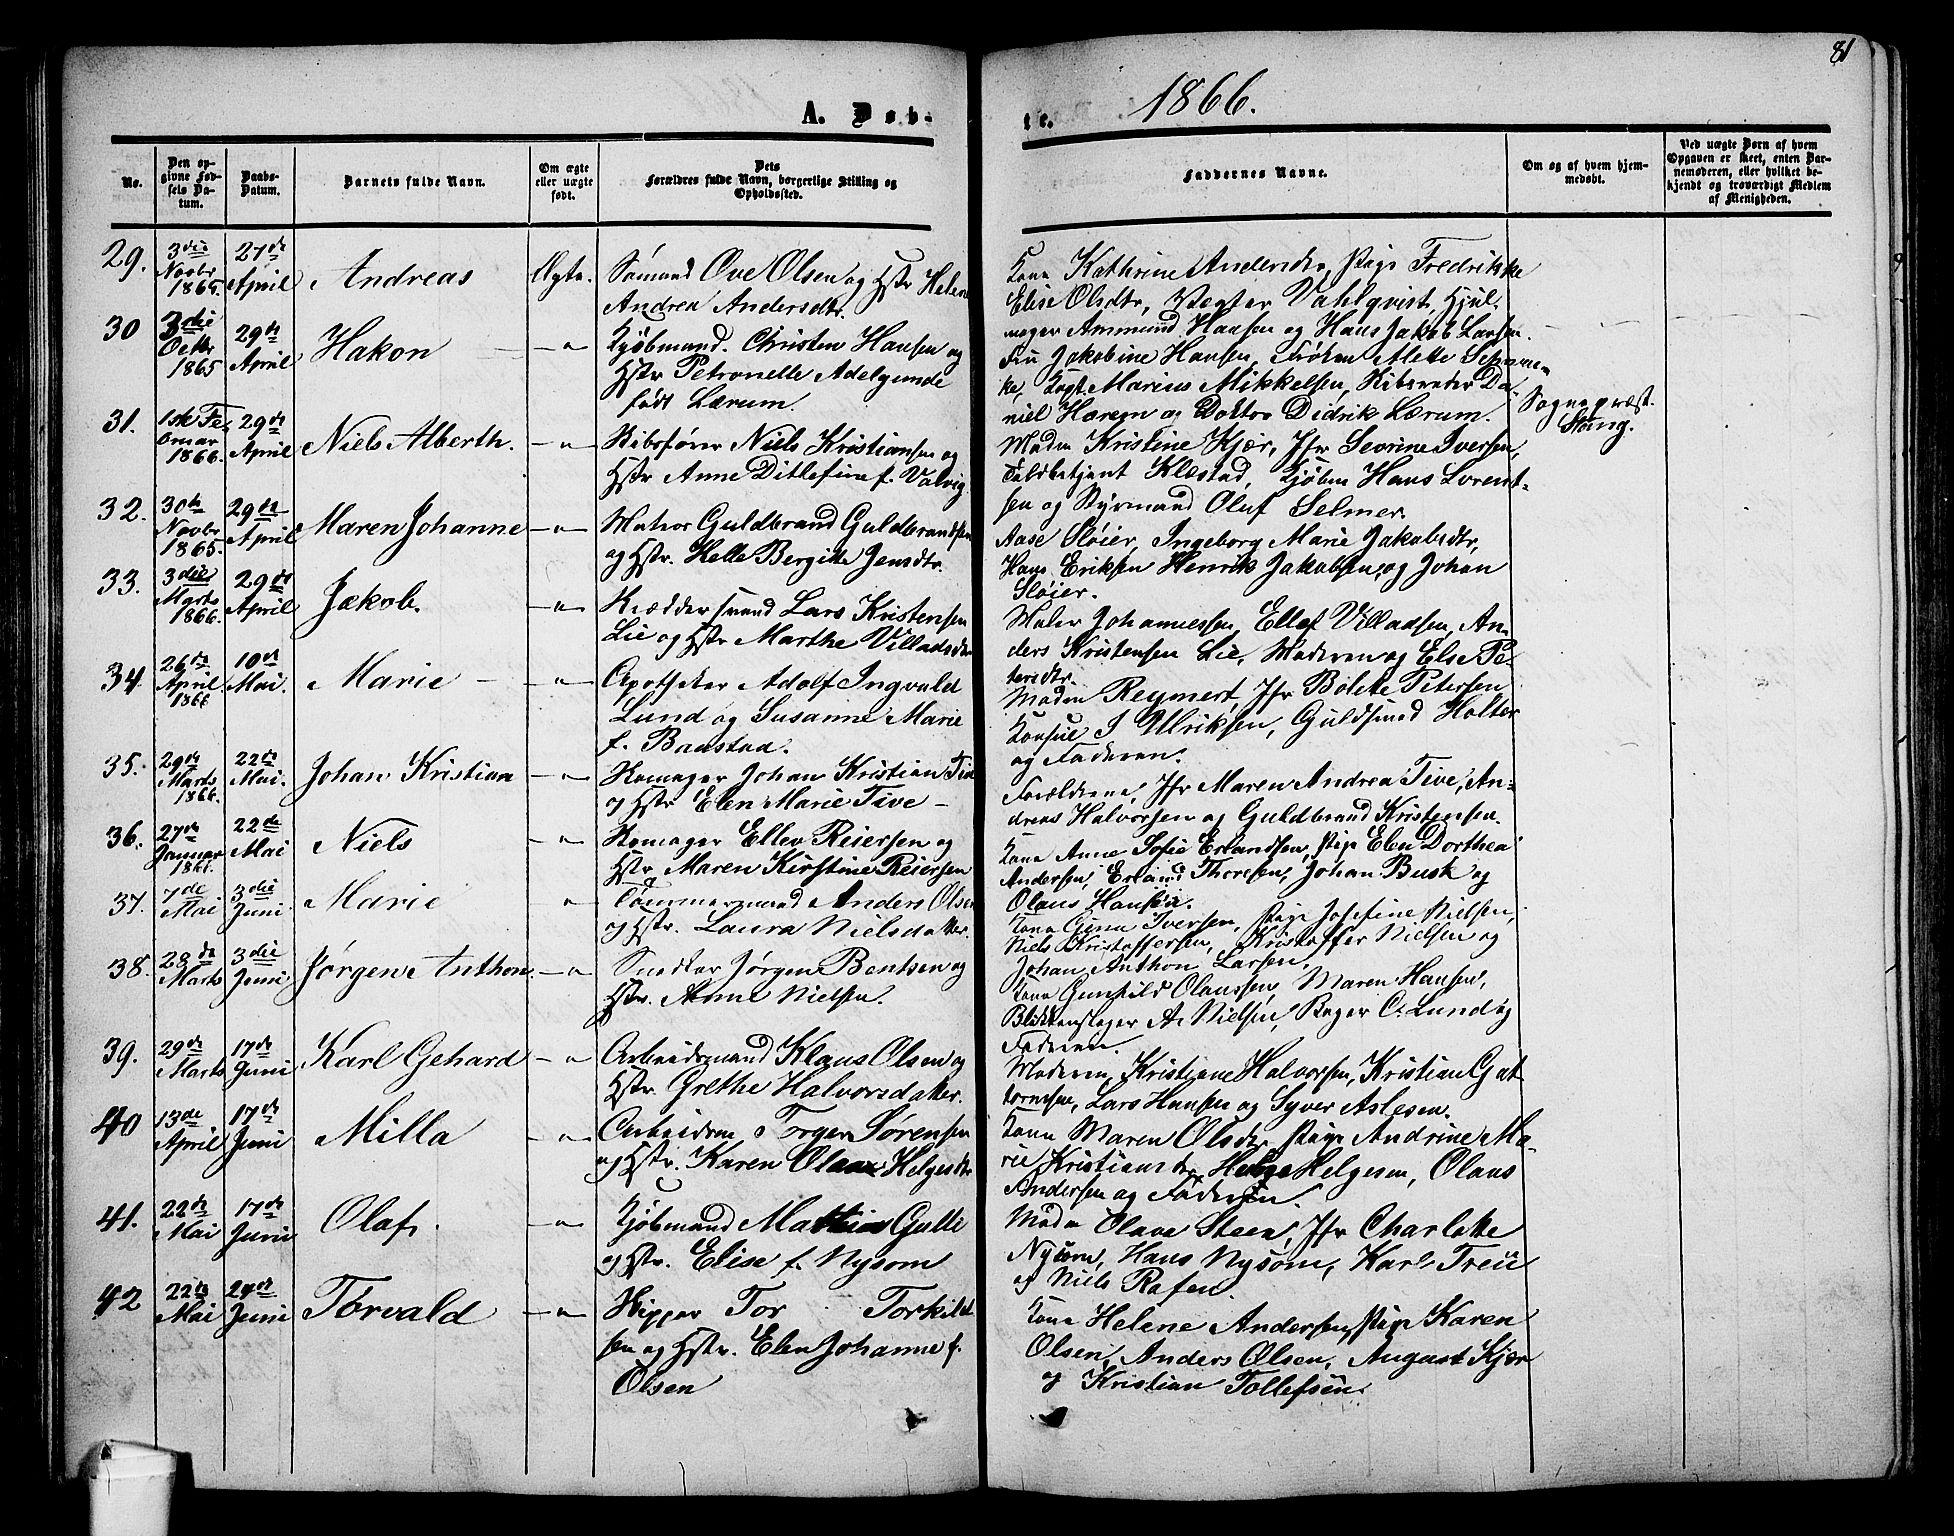 81
A. Døb-
te.
1866.
No.
Den op-
givne Fød-
sels Da-
tum.
Daabs-
Datum.
Barnets fulde Navn.
Om ægte
eller uægte
født.
Dets
Forældres fulde Navn, borgerlige Stilling og
Opholdssted.
Faddernes Navne.
Om og af hvem hjem-
medøbt.
Ved uægte Børn af hvem
Opgaven er skeet, enten Bar-
nemoderen, eller hvilket be-
kjendt og troværdigt Medlem
af Menigheden.
29.
3die
Novbr
1865.
27de
April
Andreas
Ægte.
Sømand Ove Olsen og Hstr Helene
Andrea Andersdtr.
Kone Kathrine Andersdtr, Pige Fredrikke
Elise Olsdtr, Vægter Vahlqvist, Hjul-
mager Ammund Hansen og Hans Jakob Larsen.
30
3die
Octbr
1865
29de
April
Hakon
— " —
Kjøbmand Christen Hansen og
Hstr Petronelle Adelgunde
født Lærum.
Fru Jakobine Hansen, Frøken Mette
Kapt. Marius Mikkelsen, Skibsreder Da-
niel Haregn og Doktor Didrik Lærum.
Sognepræst
Stang.
31.
1ste Fe-
bruar
1866.
29de
April
Niels Alberth.
— " —
Skibsfører Niels Kristiansen og
Hstr Anne Ditlefine f. Valvig
Madm Kristine Kjær, Jfr Sevrine Iversen,
Toldbetjent Klæstad, Kjøbm Hans Lorent-
sen og Styrmand Oluf Selmer.
32.
30te
Novbr
1865.
29de
April
Maren Johanne
— " —
Matros Guldbrand Guldbrandsen
og Hstr. Helle Bergitte Jensdtr.
Aase Sløier, Ingeborg Marie Jakobsdtr,
Hans Eriksen Henrik Jakobsen, og Johan
Sløier.
33.
3die
Marts
1866.
29de
April
Jakob.
— " —
Skræddersvend Lars Kristensen
Lie og Hstr Marthe Villadsdtr
Maler Johannessen, Ellef Villadsen, An-
ders Kristensen Lie, Moderen og Else Pe-
tersdtr.
34.
26de
April
1866
10de
Mai.
Marie
— " —
Apotheker Adolf Ingvald
Lund og Susanne Marie
f. Baastad.
Madm Reymert, Jfr Bolette Petersen
Konsul J Ulriksen, Guldsmed Holter
og Faderen.
35.
29de
Marts
1866.
22de
Mai.
Johan Kristian
— " —
Skomager Johan Kristian Tive
og Hstr Elen Marie Tive —
Forældrene, Jfr Maren Andrea Tive, An-
dreas Halvorsen og Guldbrand Kristensen.
36.
27de
Januar
1866.
22de
Mai
Niels
— " —
Skomager Ellev Reiersen og
Hstr Maren Kirstine Reiersen
Kone Anne Sofie Erlandsen, Pige Elen Dorthea
Andersen, Erland Thoresen, Johan Busk og
Olaus Hansen.
37.
7de
Mai
3die
Juni.
Marie
"
Tømmermand Anders Olsen
og Hstr. Laura Nielsdatter.
Kone Gunu Iversen, Pige Josefine Nielsen,
Niels Kristoffersen, Kristoffer Nielsen og
Johan Anthon Larsen.
38.
28de
Marts
3die
Juni
Jørgen Anthon.
— " —
Snedker Jørgen Bentsen og
Hstr. Anne Nielsen.
Kone Gunhild Olaussen, Maren Hansen,
Blikkenslager A. Nielsen, Bager C. Lund og
Faderen.
39.
29de
Marts
17de
Juni
Karl Gehard
— "
Arbeidsmand Klaus Olsen og
Hstr. Grethe Halvorsdatter.
Moderen, Kristiane Halvorsen, Kristian Gut-
tormsen, Lars Hansen og Syver Aslesen.
40
13de
April
17de
Juni
Milla
— " —
Arbeidsm Torger Sørensen
og Hstr. Karen Olava Helgesdtr
Kone Maren Olsdtr, Pige Andrine Ma-
rie Kristiansdtr, Helge Helgesen, Olaus
Andersen og Faderen.
41.
22de
Mai
17de
Juni
Olaf.
— " —
Kjøbmand Mathias Gulli
og Hstr. Elise f. Nysom
Madm Olava Steen, Jfr Charlotte
Nysom, Hans Nysom, Karl Treu
og Niels Rafen.
42
22de
Mai
24de
Juni
Torvald
— " —
Skipper Tor Torkild-
sen og Hstr. Elen Johanne f.
Olsen
Kone Helene Andersen, Pige Karen
Olsen, Anders Olsen, August Kjær
og Kristian Tollefsen.